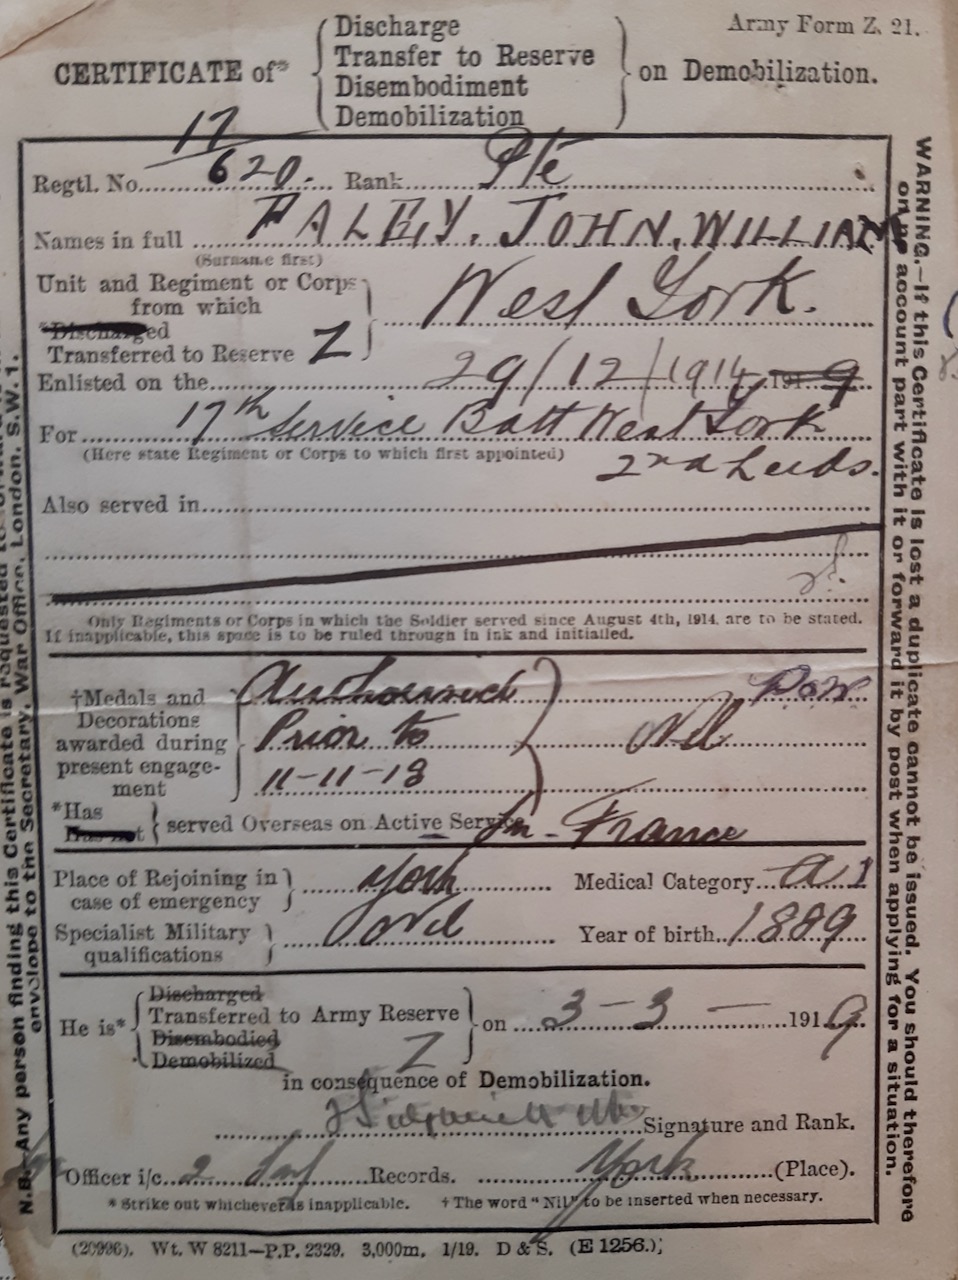 Army Form Z. 21.
CERTIFICATE of*
Discharge
Transfer to Reserve
Disembodiment
Demobilization
on Demobilization.
Regtl. No. 17/620. Rank Pte
Names in full PALEY, JOHN, WILLIAM
(Surname first)
Unit and Regiment or Corps
from which
*Discharged
Transferred to Reserve Z
West York.
Enlisted on the 29/12/1914 191 9
For 17th Service Batt West York
(Here state Regiment or Corps to which first appointed)
2nd Leeds.
Also served in
Only Regiments or Corps in which the Soldier served since August 4th, 1914, are to be stated.
If inapplicable, this space is to be ruled through in ink and initialled.
†Medals and
Decorations
awarded during
present engage-
ment
Authorised
Prior to
11-11-18
Nil
*Has
Has not
served Overseas on Active Service
In - France
Place of Rejoining in
case of emergency
York
Medical Category A 1
Specialist Military
qualifications
Nil
Year of birth 1889
He is*
Discharged
Transferred to Army Reserve
Disembodied
Demobilized
Z
on 3 - 3 - 1919
in consequence of Demobilization.
Signature and Rank.
Officer i/c 2 Inf Records. York (Place).
* Strike out whichever is inapplicable. † The word "Nil" to be inserted when necessary.
(20996). Wt. W 8211—P.P. 2329. 3,000m. 1/19. D & S. (E 1256.)
WARNING.—If this Certificate is lost a duplicate cannot be issued. You should therefore
on no account part with it or forward it by post when applying for a situation.
N.B.—Any person finding this Certificate is requested to
envelope to the Secretary, War Office, London, S.W. 1.